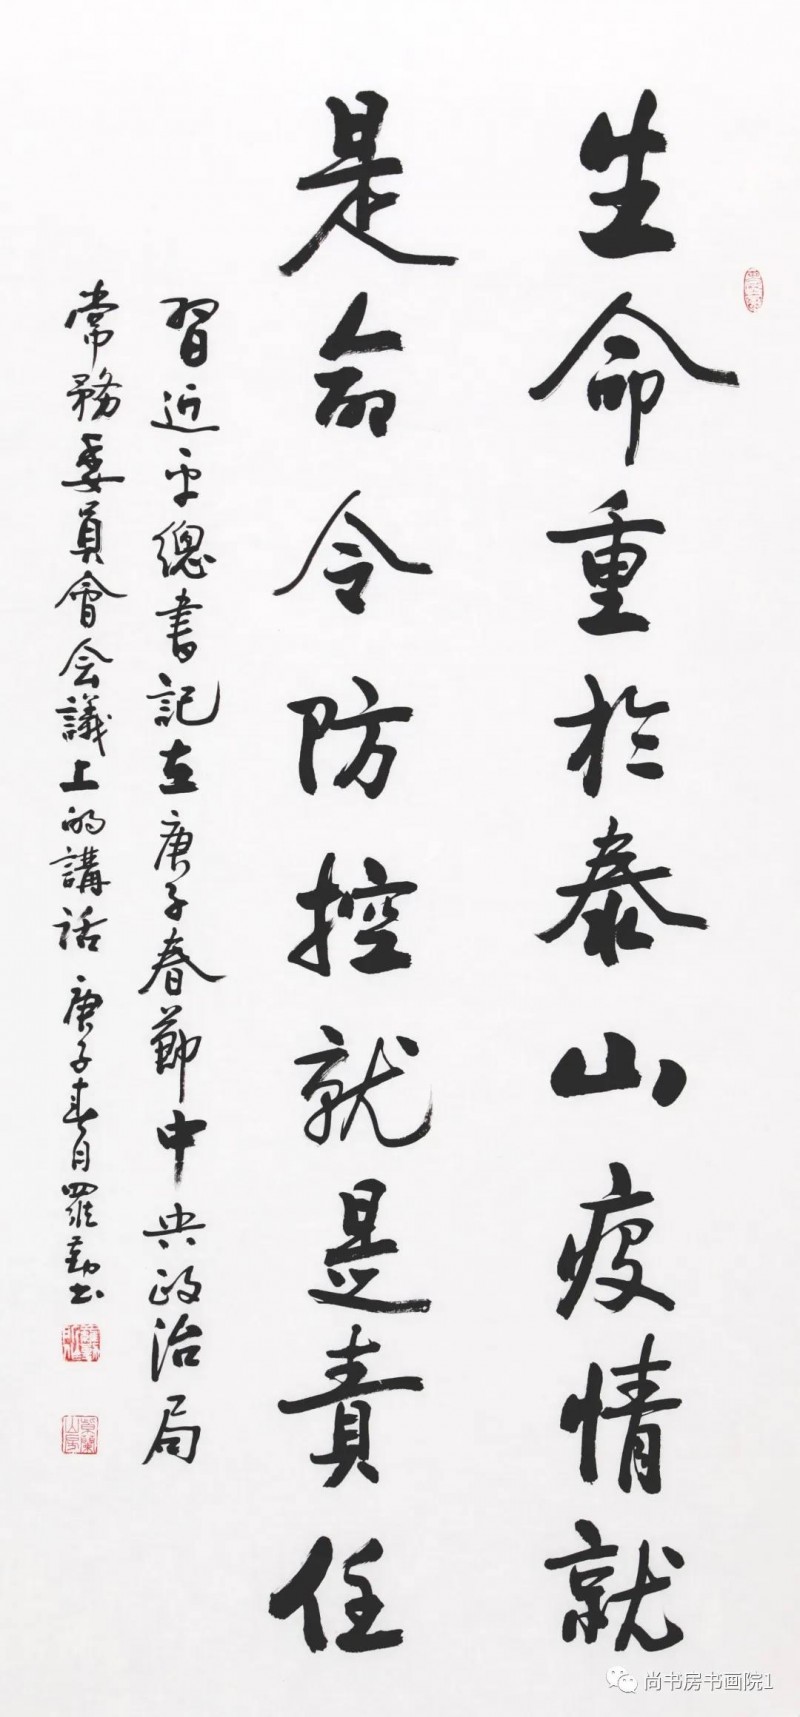 生命重於泰山疫情就
是命令防控就是責任
習近平總書記在庚子春節中央政治局
常務委員會会議上的講話 庚子春月羅勤书
尚书房书画院1